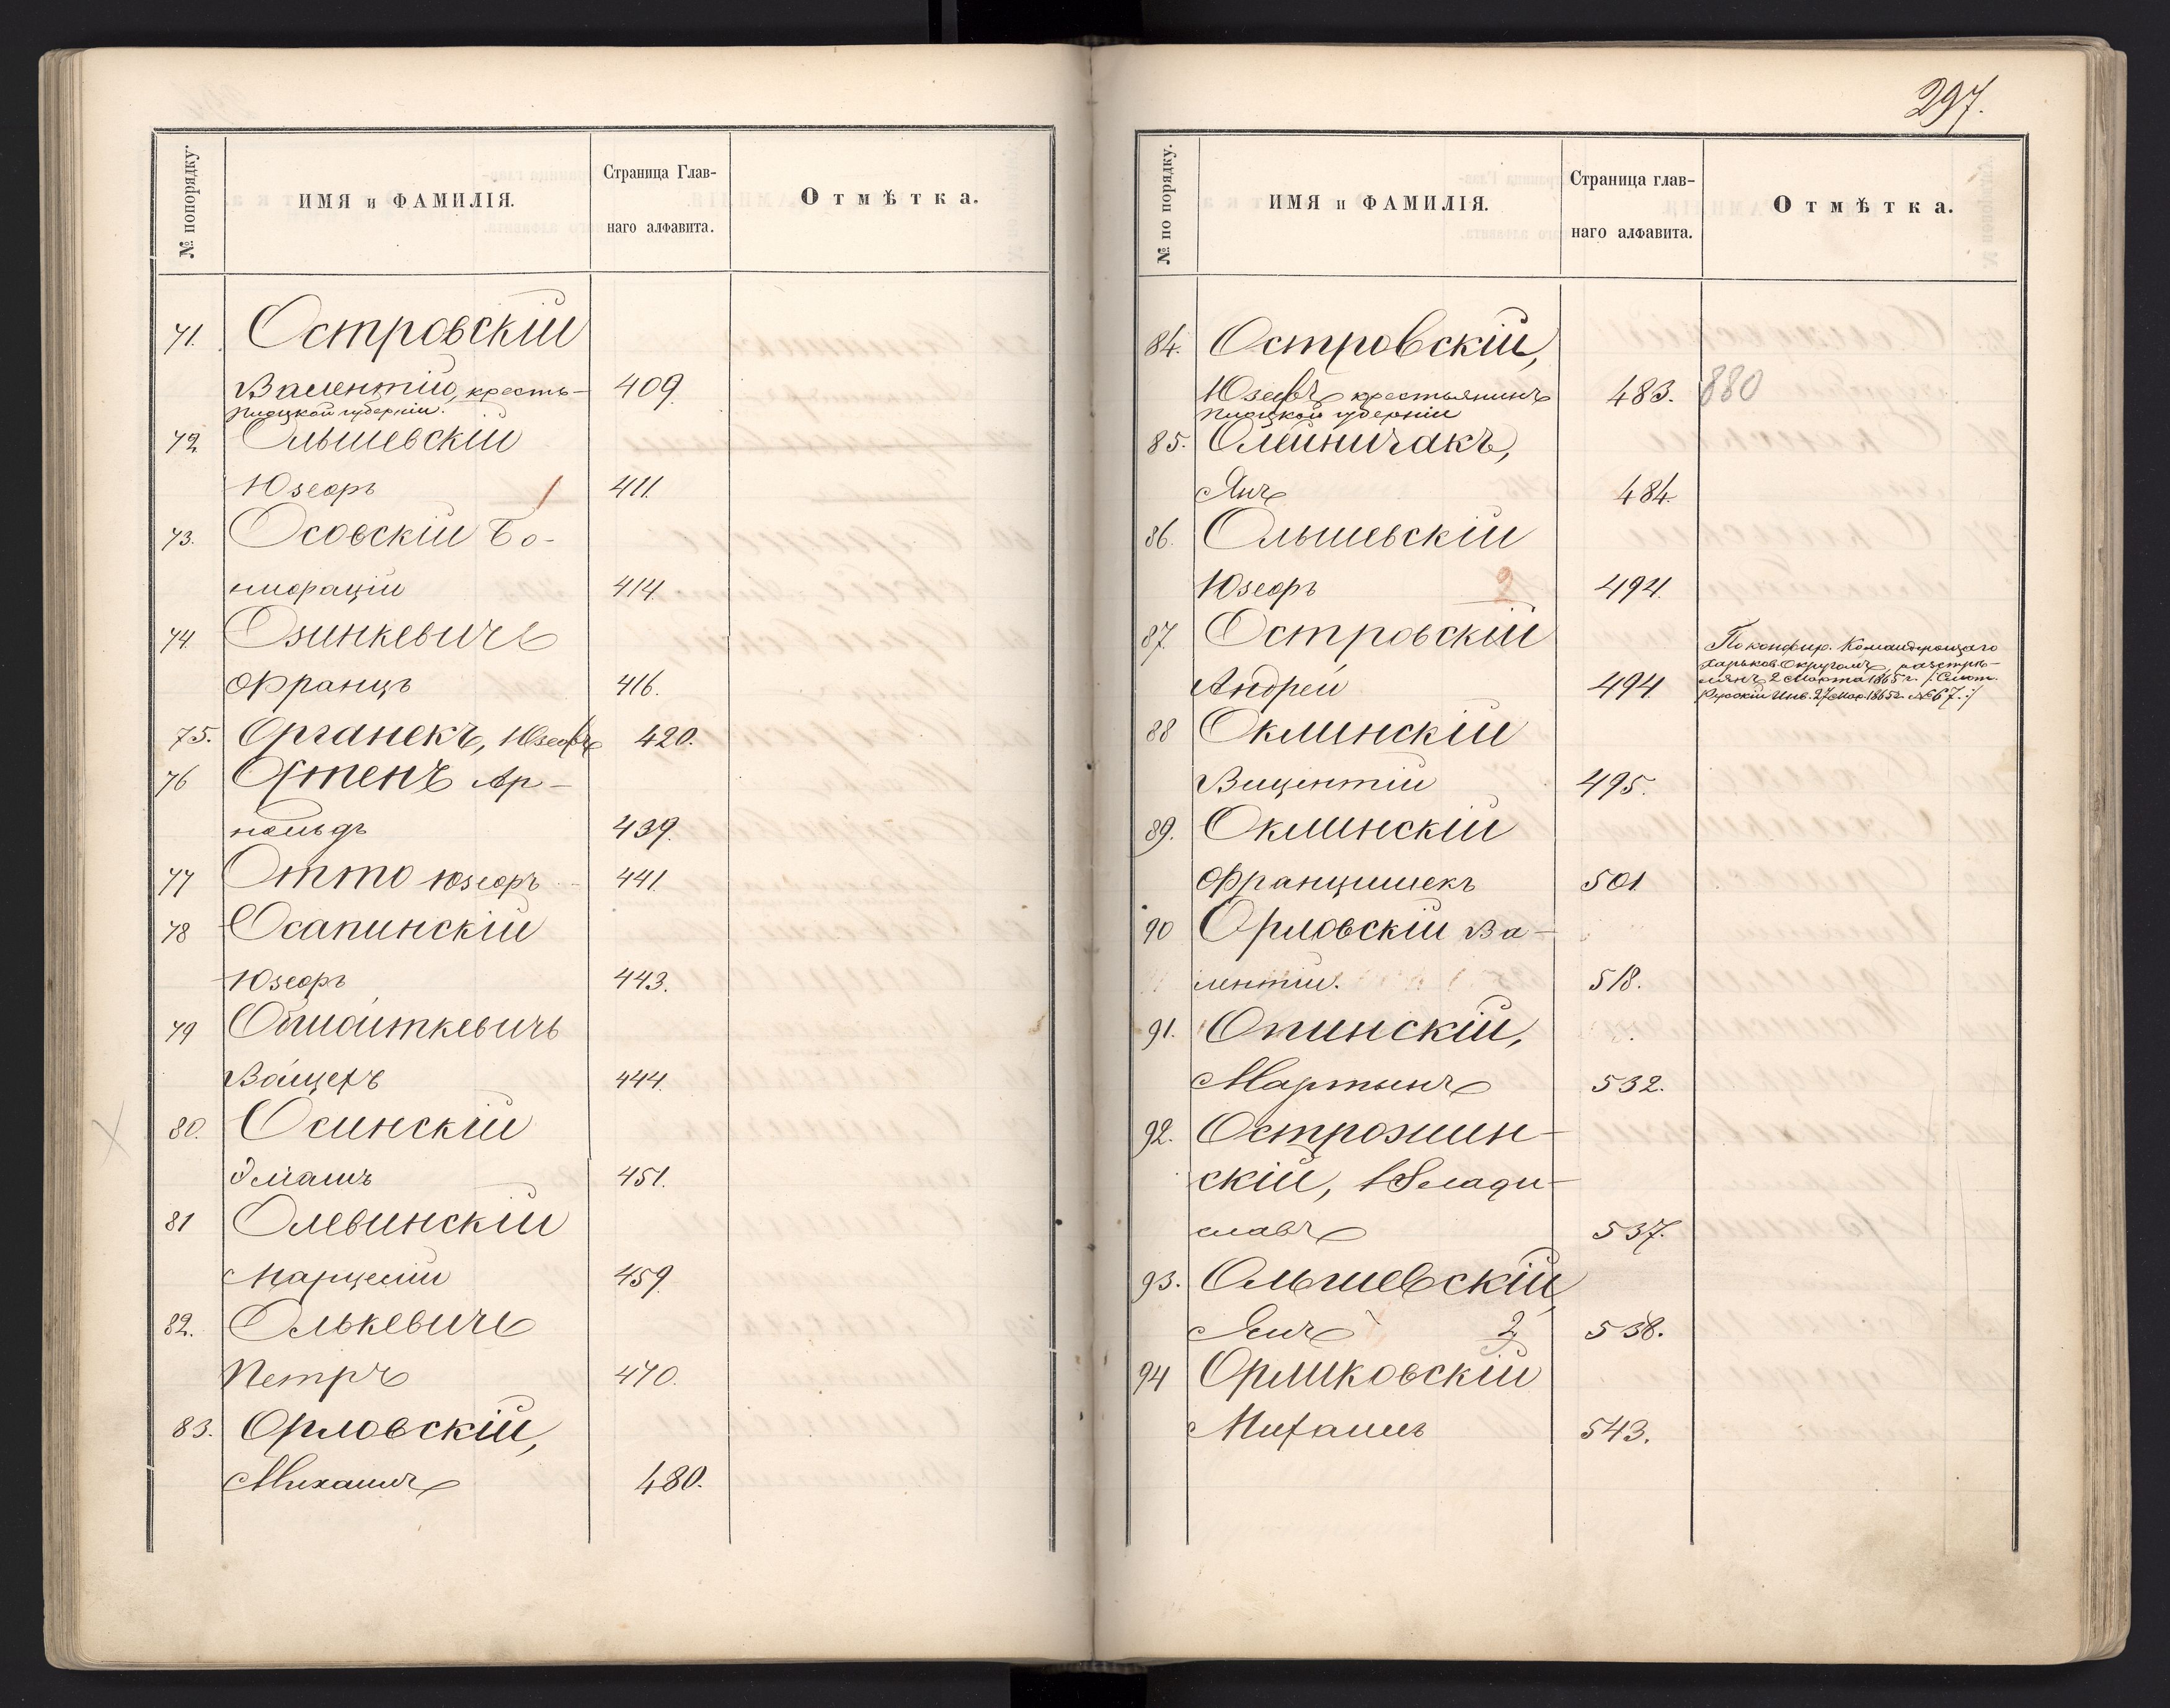 № попорядку.
ИМЯ и ФАМИЛІЯ.
Страница Глав-
наго алфавита.
Отмѣтка.
71. Островскій
Валентій, кресть- 409.
Плоцкой губерніи.
72. Ольшевскій
Юзефъ 1 411.
73. Осовскій Бо-
нифацій 414.
74. Озинкевичъ
Францъ 416.
75. Органекъ, Юзефъ 420.
76 Охтенъ Ар-
нольдъ 439.
77 Отто Юзефъ 441.
78 Осапинскій
Юзефъ 443.
79
444.
80. Осинскій
451.
81 Олевинскій
Марцелій 459
82. Олькевичъ
Петръ 470.
83. Орловскій,
Михаилъ 480.
297.
№ по порядку.
ИМЯ и ФАМИЛІЯ.
Страница глав-
наго алфавита.
Отмѣтка.
84. Островскій,
Юзефъ крестьянинъ 483. 880
Плоцкой губерніи
85. Олейничакъ,
Янъ 484.
86. Ольшевскій
Юзефъ 2 494.
87. Островскій
Андрей 494.
По конфир. Командующаго
Харьков. Округомъ, разстрѣ-
лянъ 2 Марта 1865 г. /: Смот.
Русскій Инв. 27 Мар. 1865 г. № 67. :/
88 Оклинскій
Вицентій 495.
89. Оклинскій
Францишекъ 501
90 Орловскій Ва-
лентій. 518.
91. Опинскій,
Мартынъ 532.
92. Острожин-
скій, Влади-
славъ 537.
93. Ольшевскій
Янъ 2 538.
94 Орликовскій
Михаилъ 543.